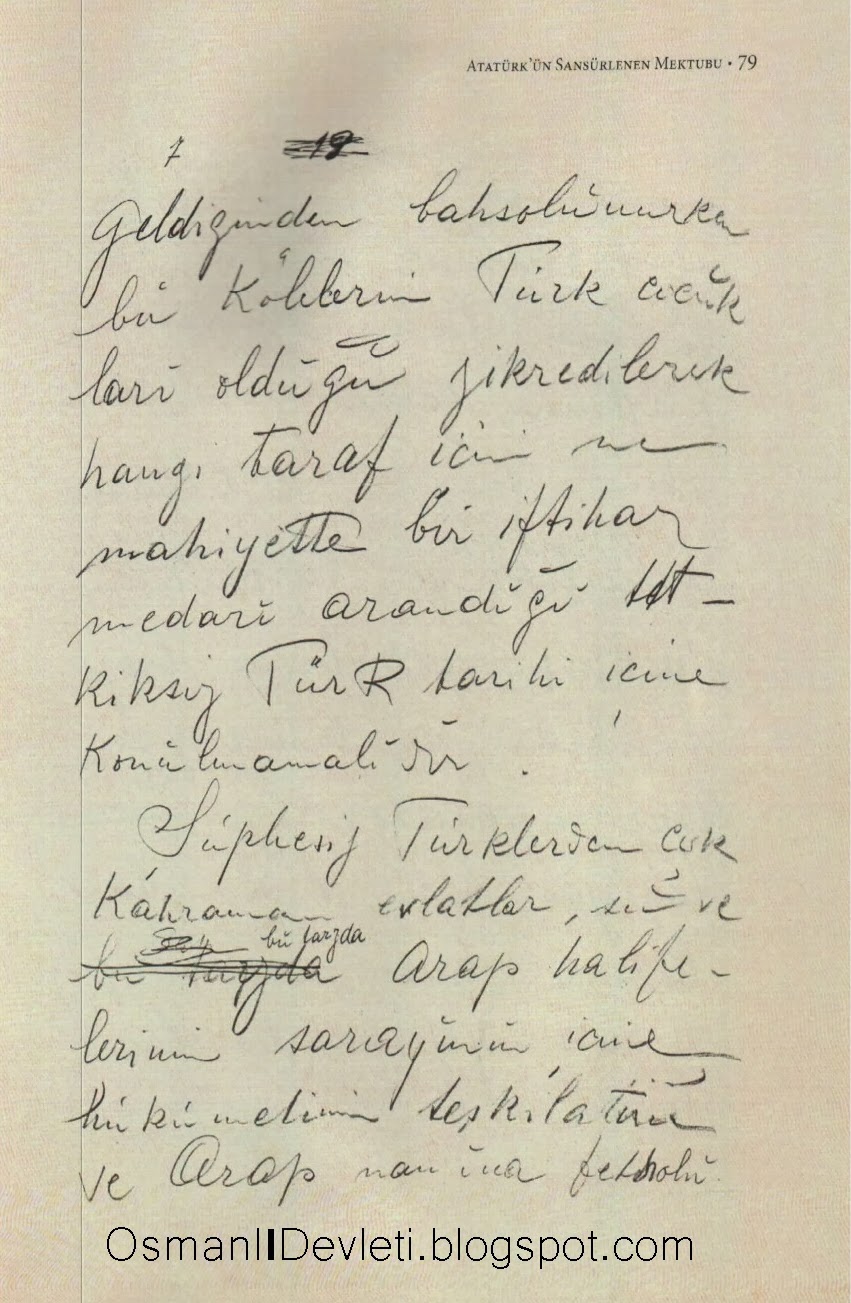 ATATÜRK'ÜN SANSÜRLENEN MEKTUBU • 79
7 19
Geldiğinden bahsolunurken
bu Kölelerin Türk cocuk
ları olduğu zikredilerek
hangi taraf için ne
mahiyette bir iftihar
medarı arandığı tet-
kiksiz Türk tarihi içine
Konulmamalıdır .
Şüphesiz Türklerden çok
Kahraman evlatlar, şu ve
bu tarzda
bu tarzda Arap halife-
lerinin sarayının içine
hükümetinin teşkilatına
ve Arap namına fetholu
OsmanlIDevleti.blogspot.com